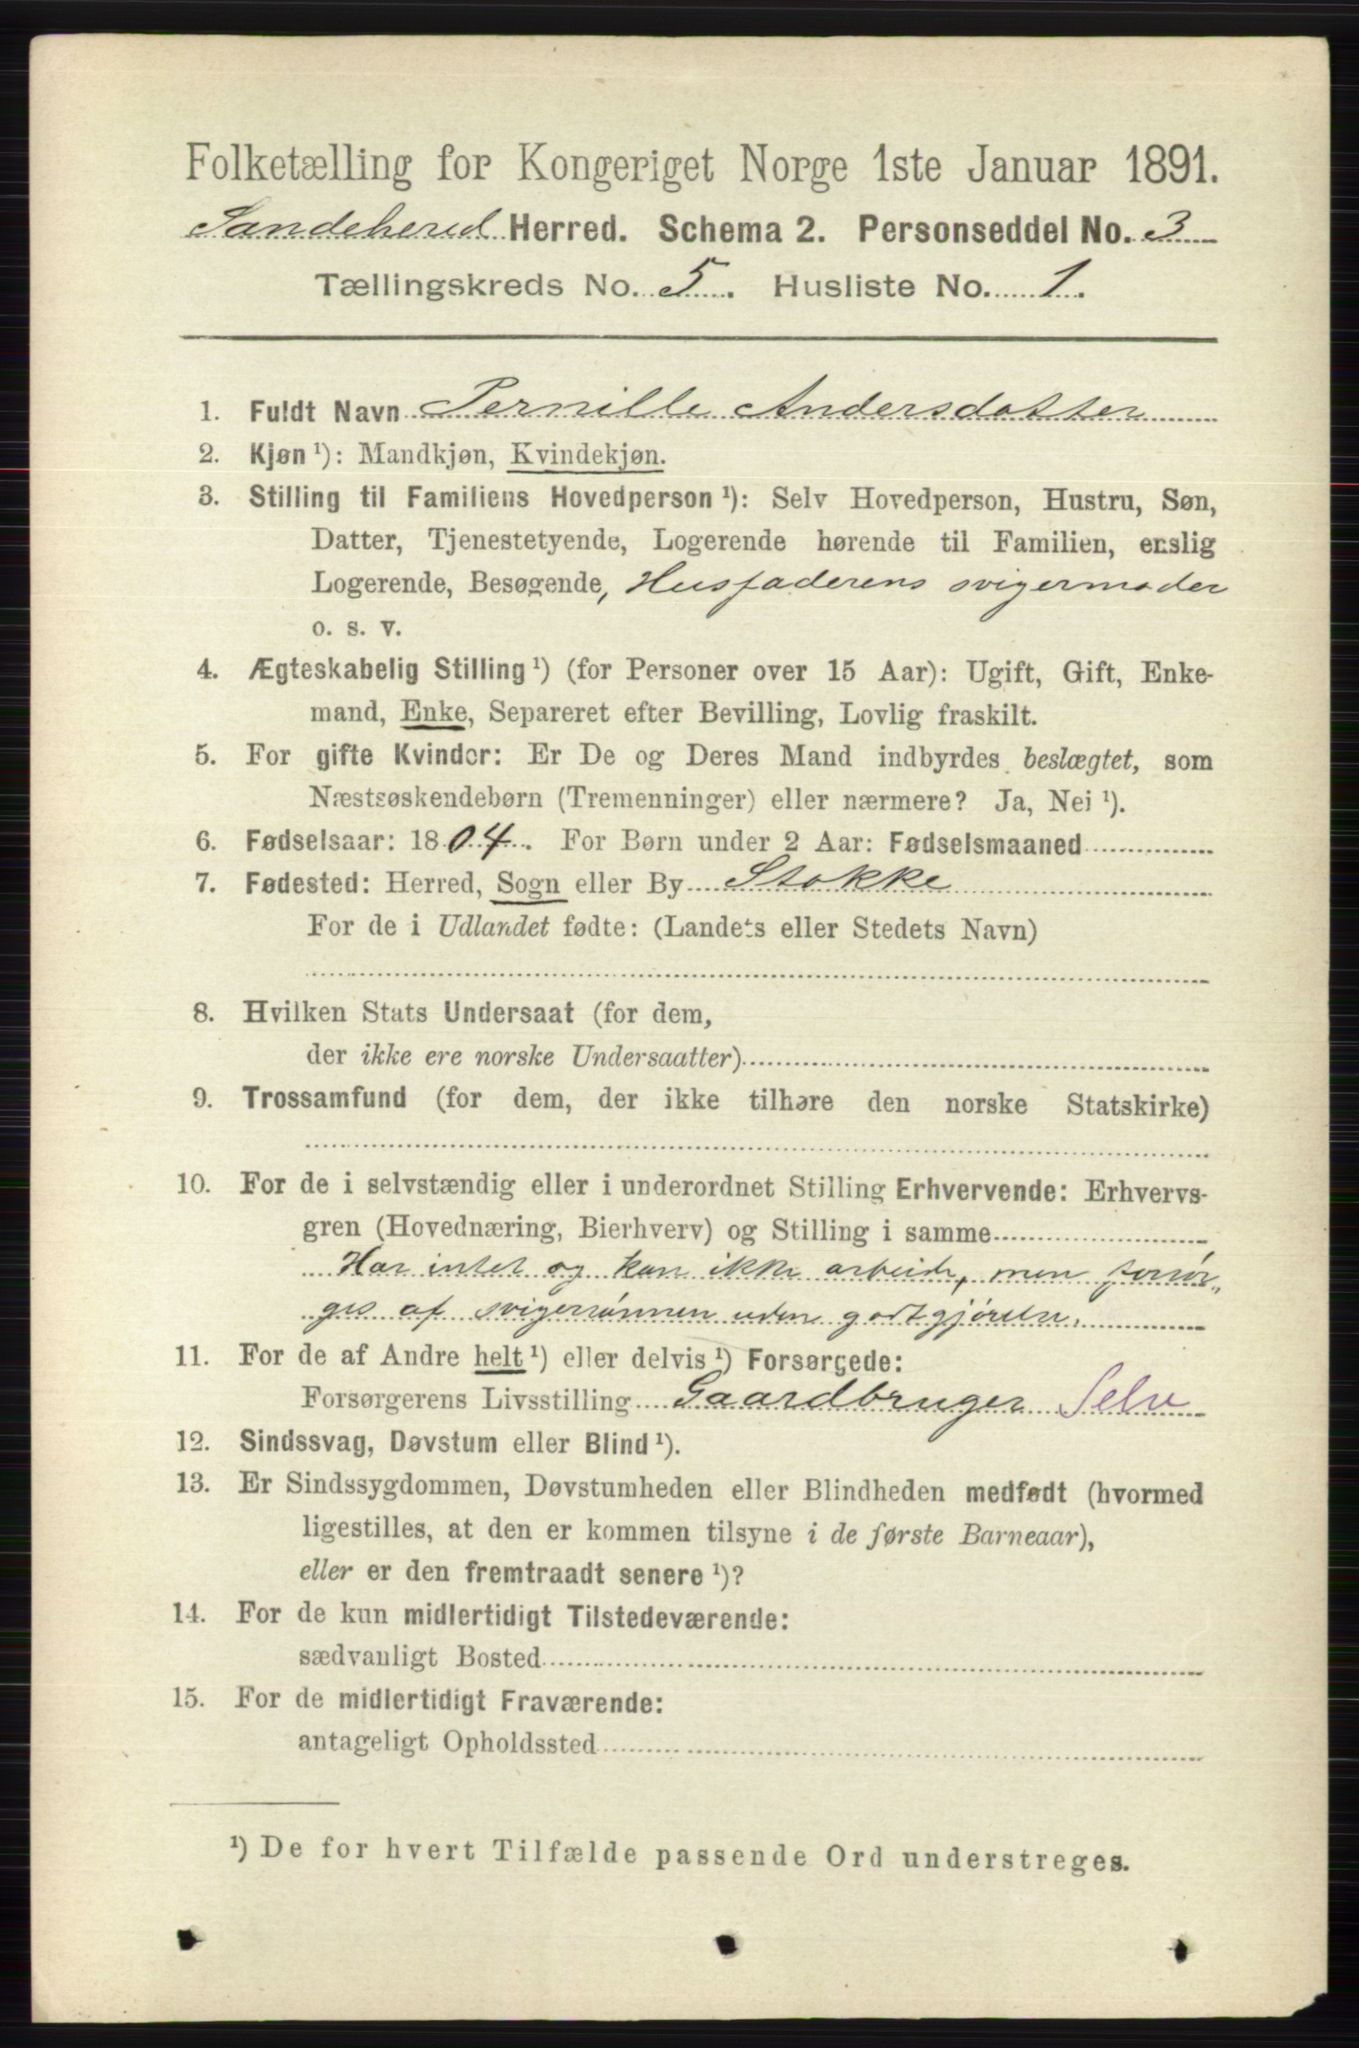 Folketælling for Kongeriget Norge 1ste Januar 1891.
Sandeherred Herred. Schema 2. Personseddel No. 3
Tællingskreds No. 5. Husliste No. 1.
1. Fuldt Navn Pernille Andersdatter
2. Kjøn ¹): Mandkjøn, Kvindekjøn.
3. Stilling til Familiens Hovedperson ¹): Selv Hovedperson, Hustru, Søn,
Datter, Tjenestetyende, Logerende hørende til Familien, enslig
Logerende, Besøgende, Husfaderens svigermoder
o. s. v.
4. Ægteskabelig Stilling ¹) (for Personer over 15 Aar): Ugift, Gift, Enke-
mand, Enke, Separeret efter Bevilling, Lovlig fraskilt.
5. For gifte Kvinder: Er De og Deres Mand indbyrdes beslægtet, som
Næstsøskendebørn (Tremenninger) eller nærmere? Ja, Nei ¹).
6. Fødselsaar: 1804. For Børn under 2 Aar: Fødselsmaaned
7. Fødested: Herred, Sogn eller By Stokke
For de i Udlandet fødte: (Landets eller Stedets Navn)
8. Hvilken Stats Undersaat (for dem,
der ikke ere norske Undersaatter)
9. Trossamfund (for dem, der ikke tilhøre den norske Statskirke)
10. For de i selvstændig eller i underordnet Stilling Erhvervende: Erhvervs-
gren (Hovednæring, Bierhverv) og Stilling i samme
Har intet og kan ikke arbeide, men forsør-
ges af svigersønnen uden godtgjørelse.
11. For de af Andre helt ¹) eller delvis ¹) Forsørgede:
Forsørgerens Livsstilling Gaardbruger Selv
12. Sindssvag, Døvstum eller Blind ¹).
13. Er Sindssygdommen, Døvstumheden eller Blindheden medfødt (hvormed
ligestilles, at den er kommen tilsyne i de første Barneaar),
eller er den fremtraadt senere ¹)?
14. For de kun midlertidigt Tilstedeværende:
sædvanligt Bosted
15. For de midlertidigt Fraværende:
antageligt Opholdssted
¹) De for hvert Tilfælde passende Ord understreges.